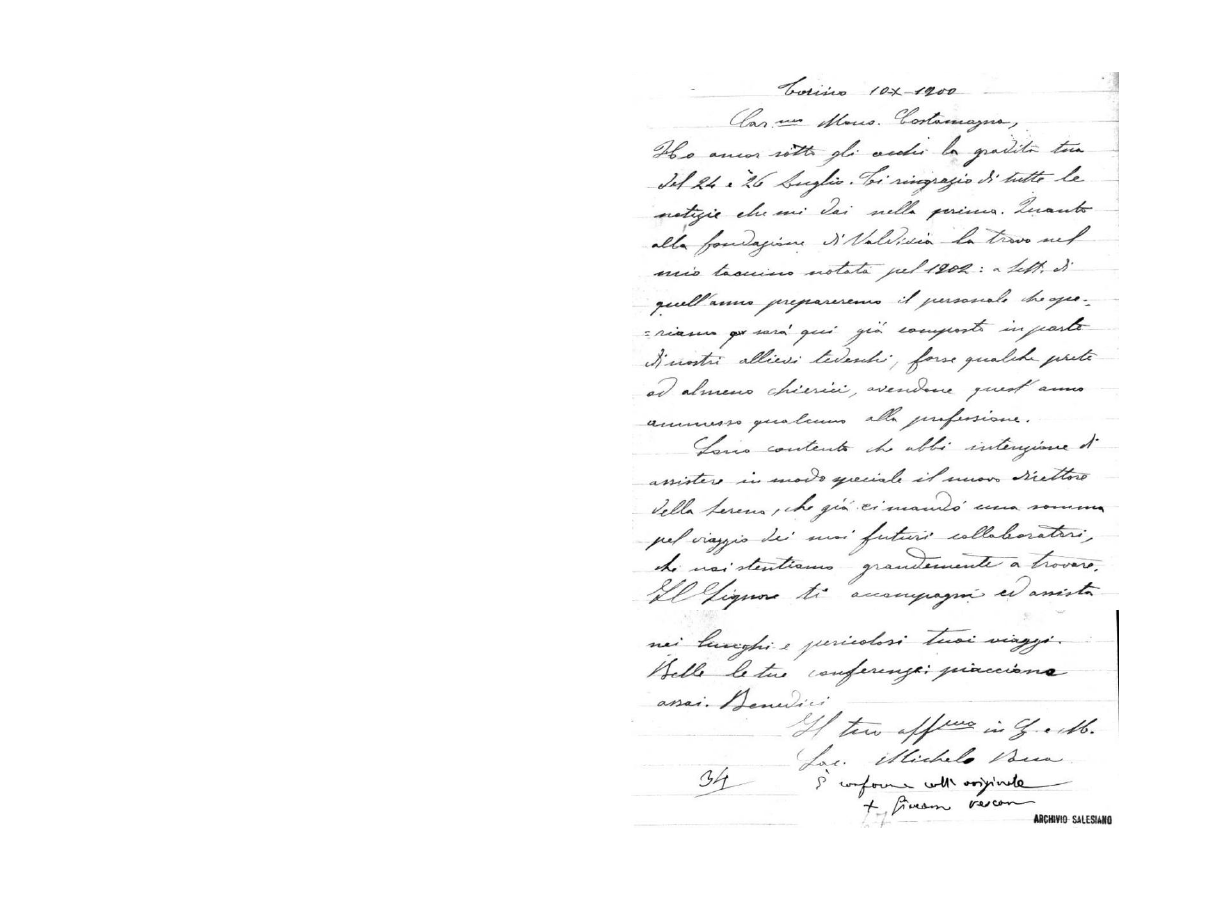 Torino 10 X-1900
Car.mo Mons. Costamagna,
Ho ancor sotto gli occhi la gradita tua
del 24 e 26 Luglio. Ti ringrazio di tutte le
notizie che mi dai nella prima. Quanto
alla fondazione di Valdivia la trovo nel
mio taccuino notata pel 1902: a Sett. di
quell'anno prepareremo il personale che spe-
=riamo sarà qui già composto in parte
di nostri allievi tedeschi, forse qualche prete
od almeno chierici, avendone quest'anno
ammesso qualcuno alla professione.
Sono contento che abbi intenzione di
assistere in modo speciale il nuovo direttore
della Serena, che già ci mandò una somma
pel viaggio dei suoi futuri collaboratori,
che noi stentiamo grandemente a trovare.
Il Signore ti accompagni ed assista
nei lunghi e pericolosi tuoi viaggi.
Belle le tue conferenze: piacciono
assai. Benedici
Il tuo aff.mo in G. e M.
Sac. Michele Rua
34
È conforme coll'originale
+ Giacomo vescovo
ARCHIVIO SALESIANO